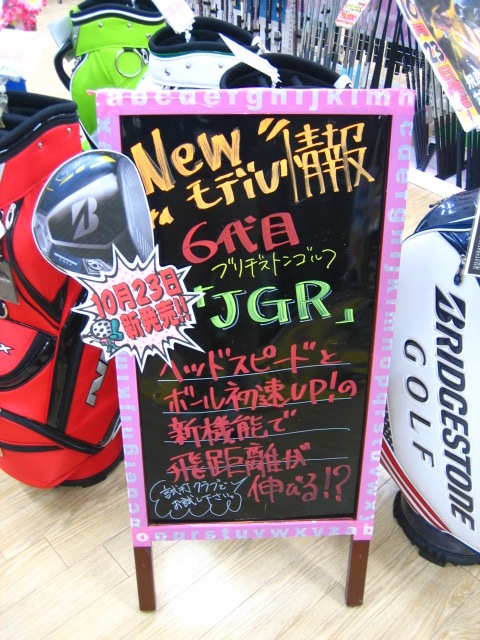 abcdefghijklmn
New
モデル情報
6代目
ブリヂストンゴルフ
「JGR」
B
10月23日
新発売!!
ヘッドスピードと
ボール初速UP!の
新機能で
飛距離が
伸びる!?
試打クラブで
お試し下さい。
opqrstuvwxyzab
BRIDGESTONE
GOLF